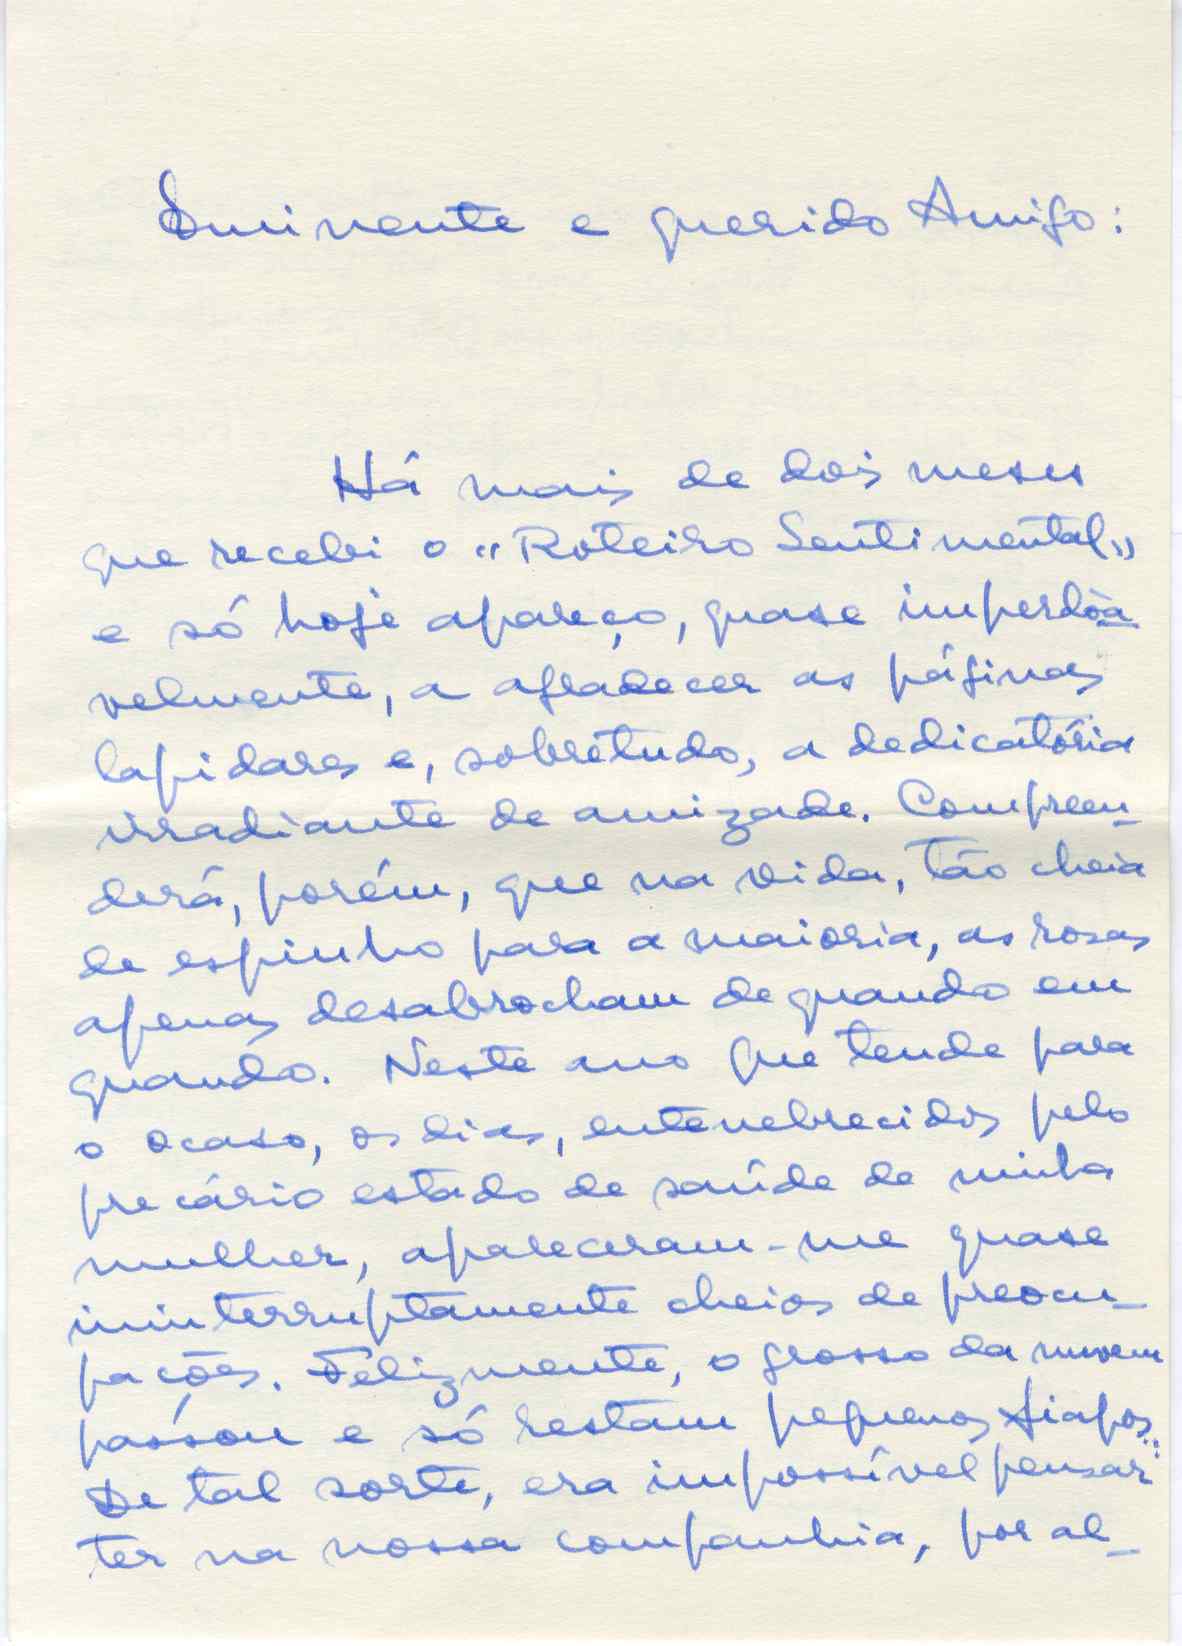 Eminente e querido Amigo:
Há mais de dois meses
que recebi o "Roteiro Sentimental"
e só hoje apareço, quase imperdòa_
velmente, a agradecer as páginas
lapidares e, sobretudo, a dedicatória
irradiante de amizade. Compreen_
derá, porém, que na vida, tão cheia
de espinho para a maioria, as rosas
apenas desabrocham de quando em
quando. Neste ano que tende para
o ocaso, os dias, entenebrecidos pelo
precário estado de saúde de minha
mulher, apareceram-me quase
ininterruptamente cheios de preocu_
pações. Felizmente, o grosso da nuvem
passou e só restam pequenos fiapos..
De tal sorte, era impossível pensar
ter na nossa companhia, por al_